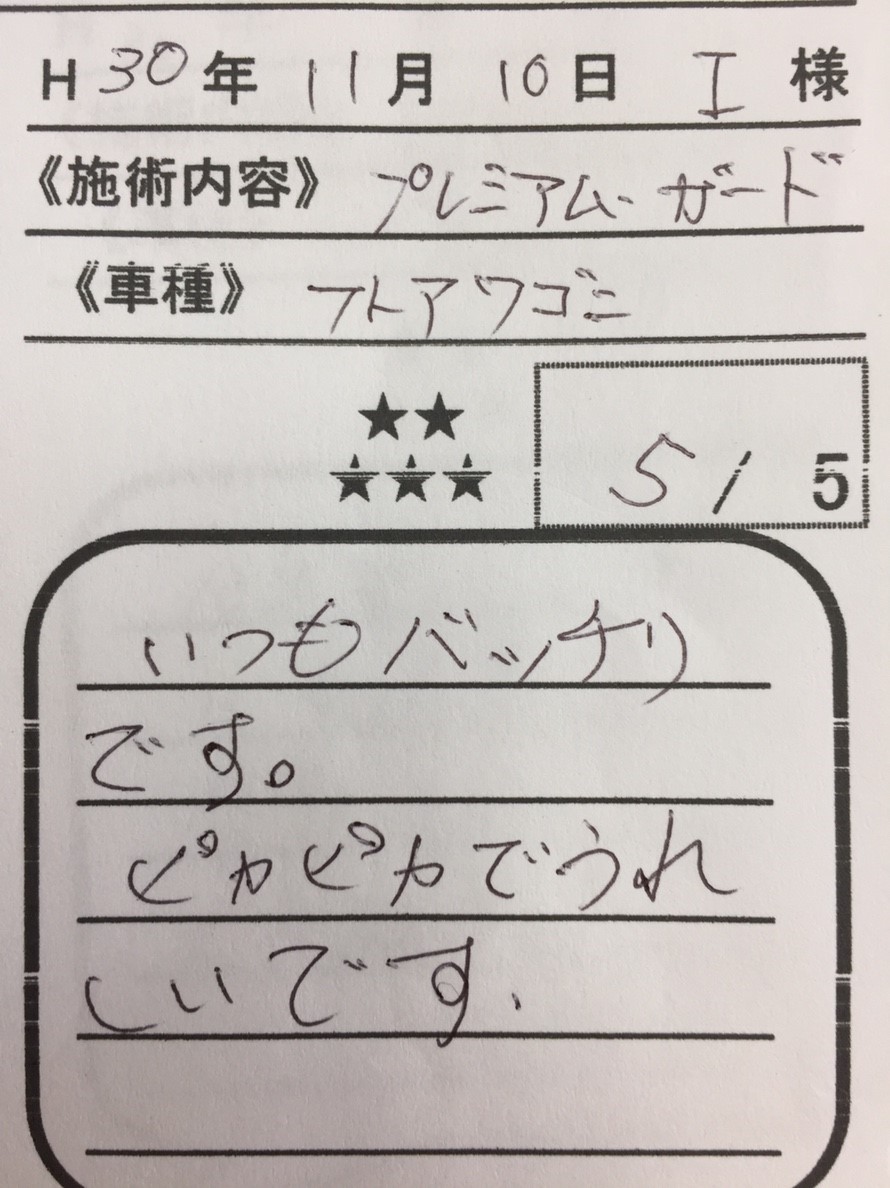 H 30年 11月 10日 I 様
《施術内容》 プレミアム・ガード
《車種》 フトアワゴン
★★
★★★
5 / 5
いつもバッチリ
です。
ピカピカでうれ
しいです.